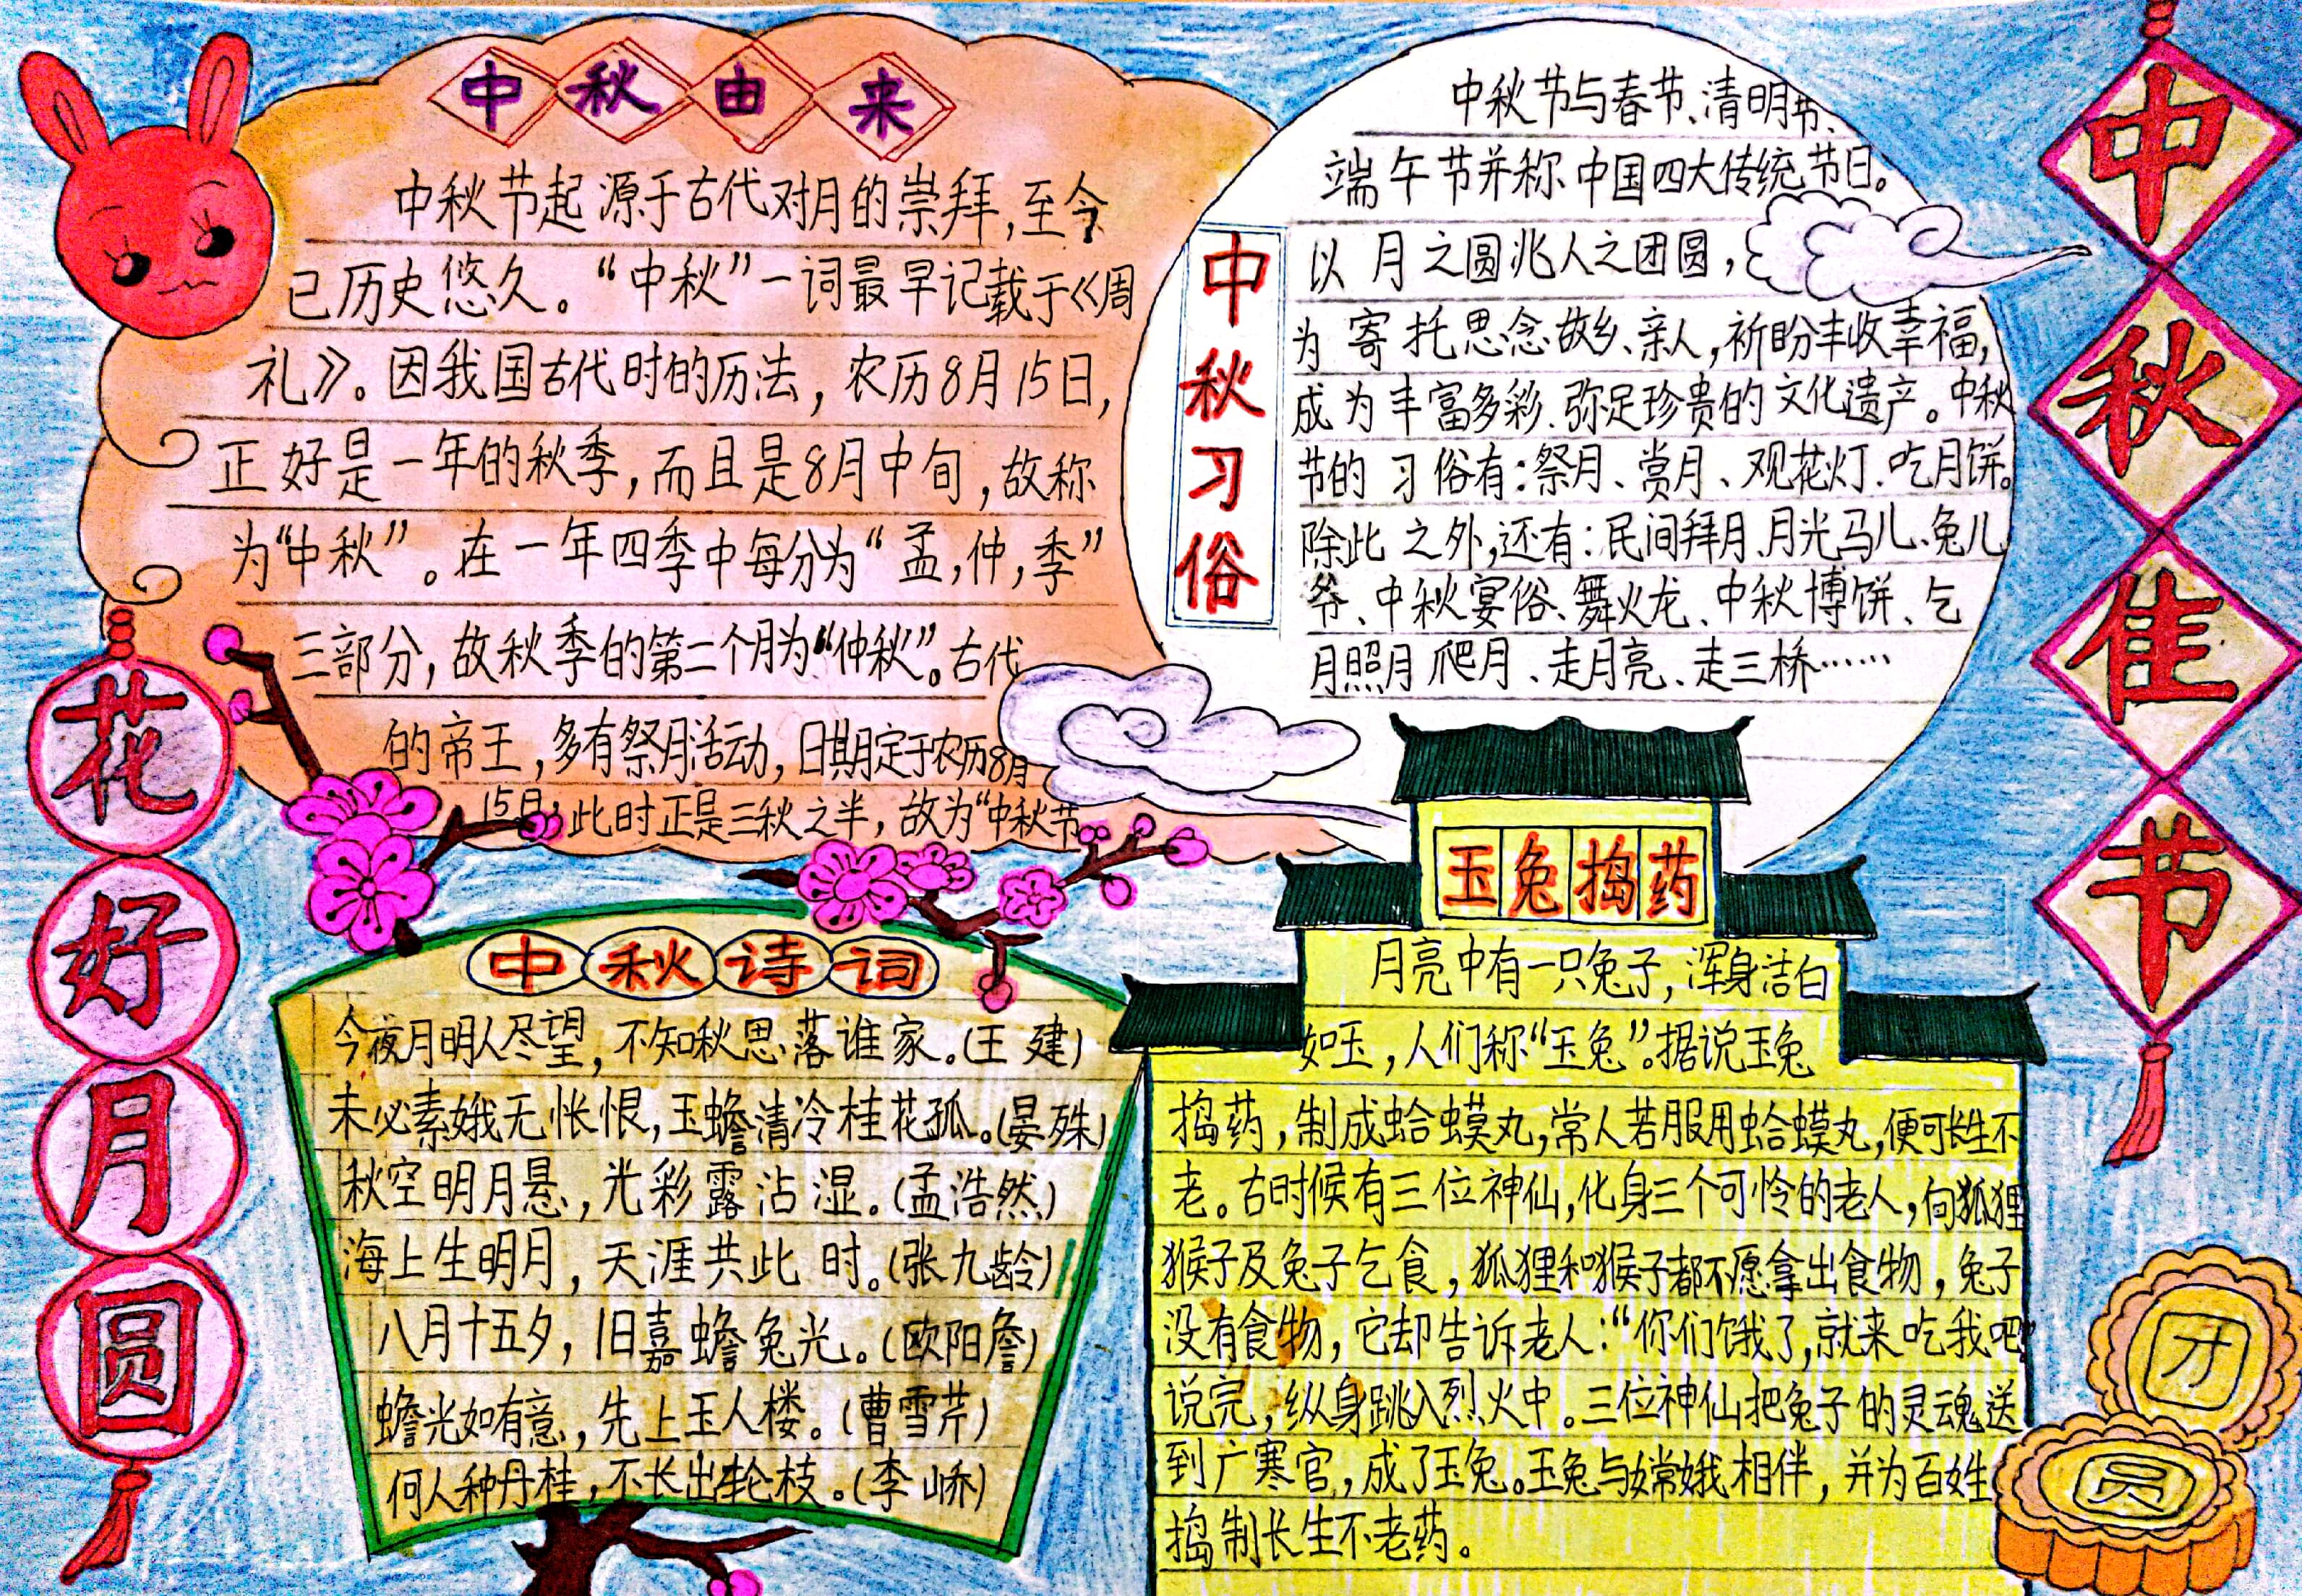 中秋由来
中秋节起源于古代对月的崇拜,至今
已历史悠久。“中秋”一词最早记载于《周
礼》。因我国古代时的历法，农历8月15日，
正好是一年的秋季,而且是8月中旬,故称
为“中秋”。在一年四季中每分为“孟,仲,季”
三部分,故秋季的第二个月为“仲秋”。古代
的帝王,多有祭月活动,日期定于农历8月
15日,此时正是三秋之半,故为“中秋节
中秋习俗
中秋节与春节、清明节、
端午节并称中国四大传统节日。
以月之圆兆人之团圆,
为寄托思念故乡、亲人,祈盼丰收幸福,
成为丰富多彩、弥足珍贵的文化遗产。中秋
节的习俗有:祭月、赏月、观花灯、吃月饼。
除此之外,还有:民间拜月、月光马儿、兔儿
爷、中秋宴俗、舞火龙、中秋博饼、乞
月照月爬月、走月亮、走三桥……
中秋佳节
花好月圆
中秋诗词
今夜月明人尽望,不知秋思落谁家。(王建)
未必素娥无怅恨,玉蟾清冷桂花孤。(晏殊)
秋空明月悬,光彩露沾湿。(孟浩然)
海上生明月,天涯共此时。(张九龄)
八月十五夕,旧嘉蟾兔光。(欧阳詹)
蟾光如有意,先上玉人楼。(曹雪芹)
何人种丹桂,不长出轮枝。(李峤)
玉兔捣药
月亮中有一只兔子,浑身洁白
如玉,人们称“玉兔”。据说玉兔
捣药,制成蛤蟆丸,常人若服用蛤蟆丸,便可长生不
老。古时候有三位神仙,化身三个可怜的老人,向狐狸
猴子及兔子乞食,狐狸和猴子都不愿拿出食物,兔子
没有食物,它却告诉老人:“你们饿了,就来吃我吧”
说完,纵身跳入烈火中。三位神仙把兔子的灵魂送
到广寒官,成了玉兔。玉兔与嫦娥相伴,并为百姓
捣制长生不老药。
团
员